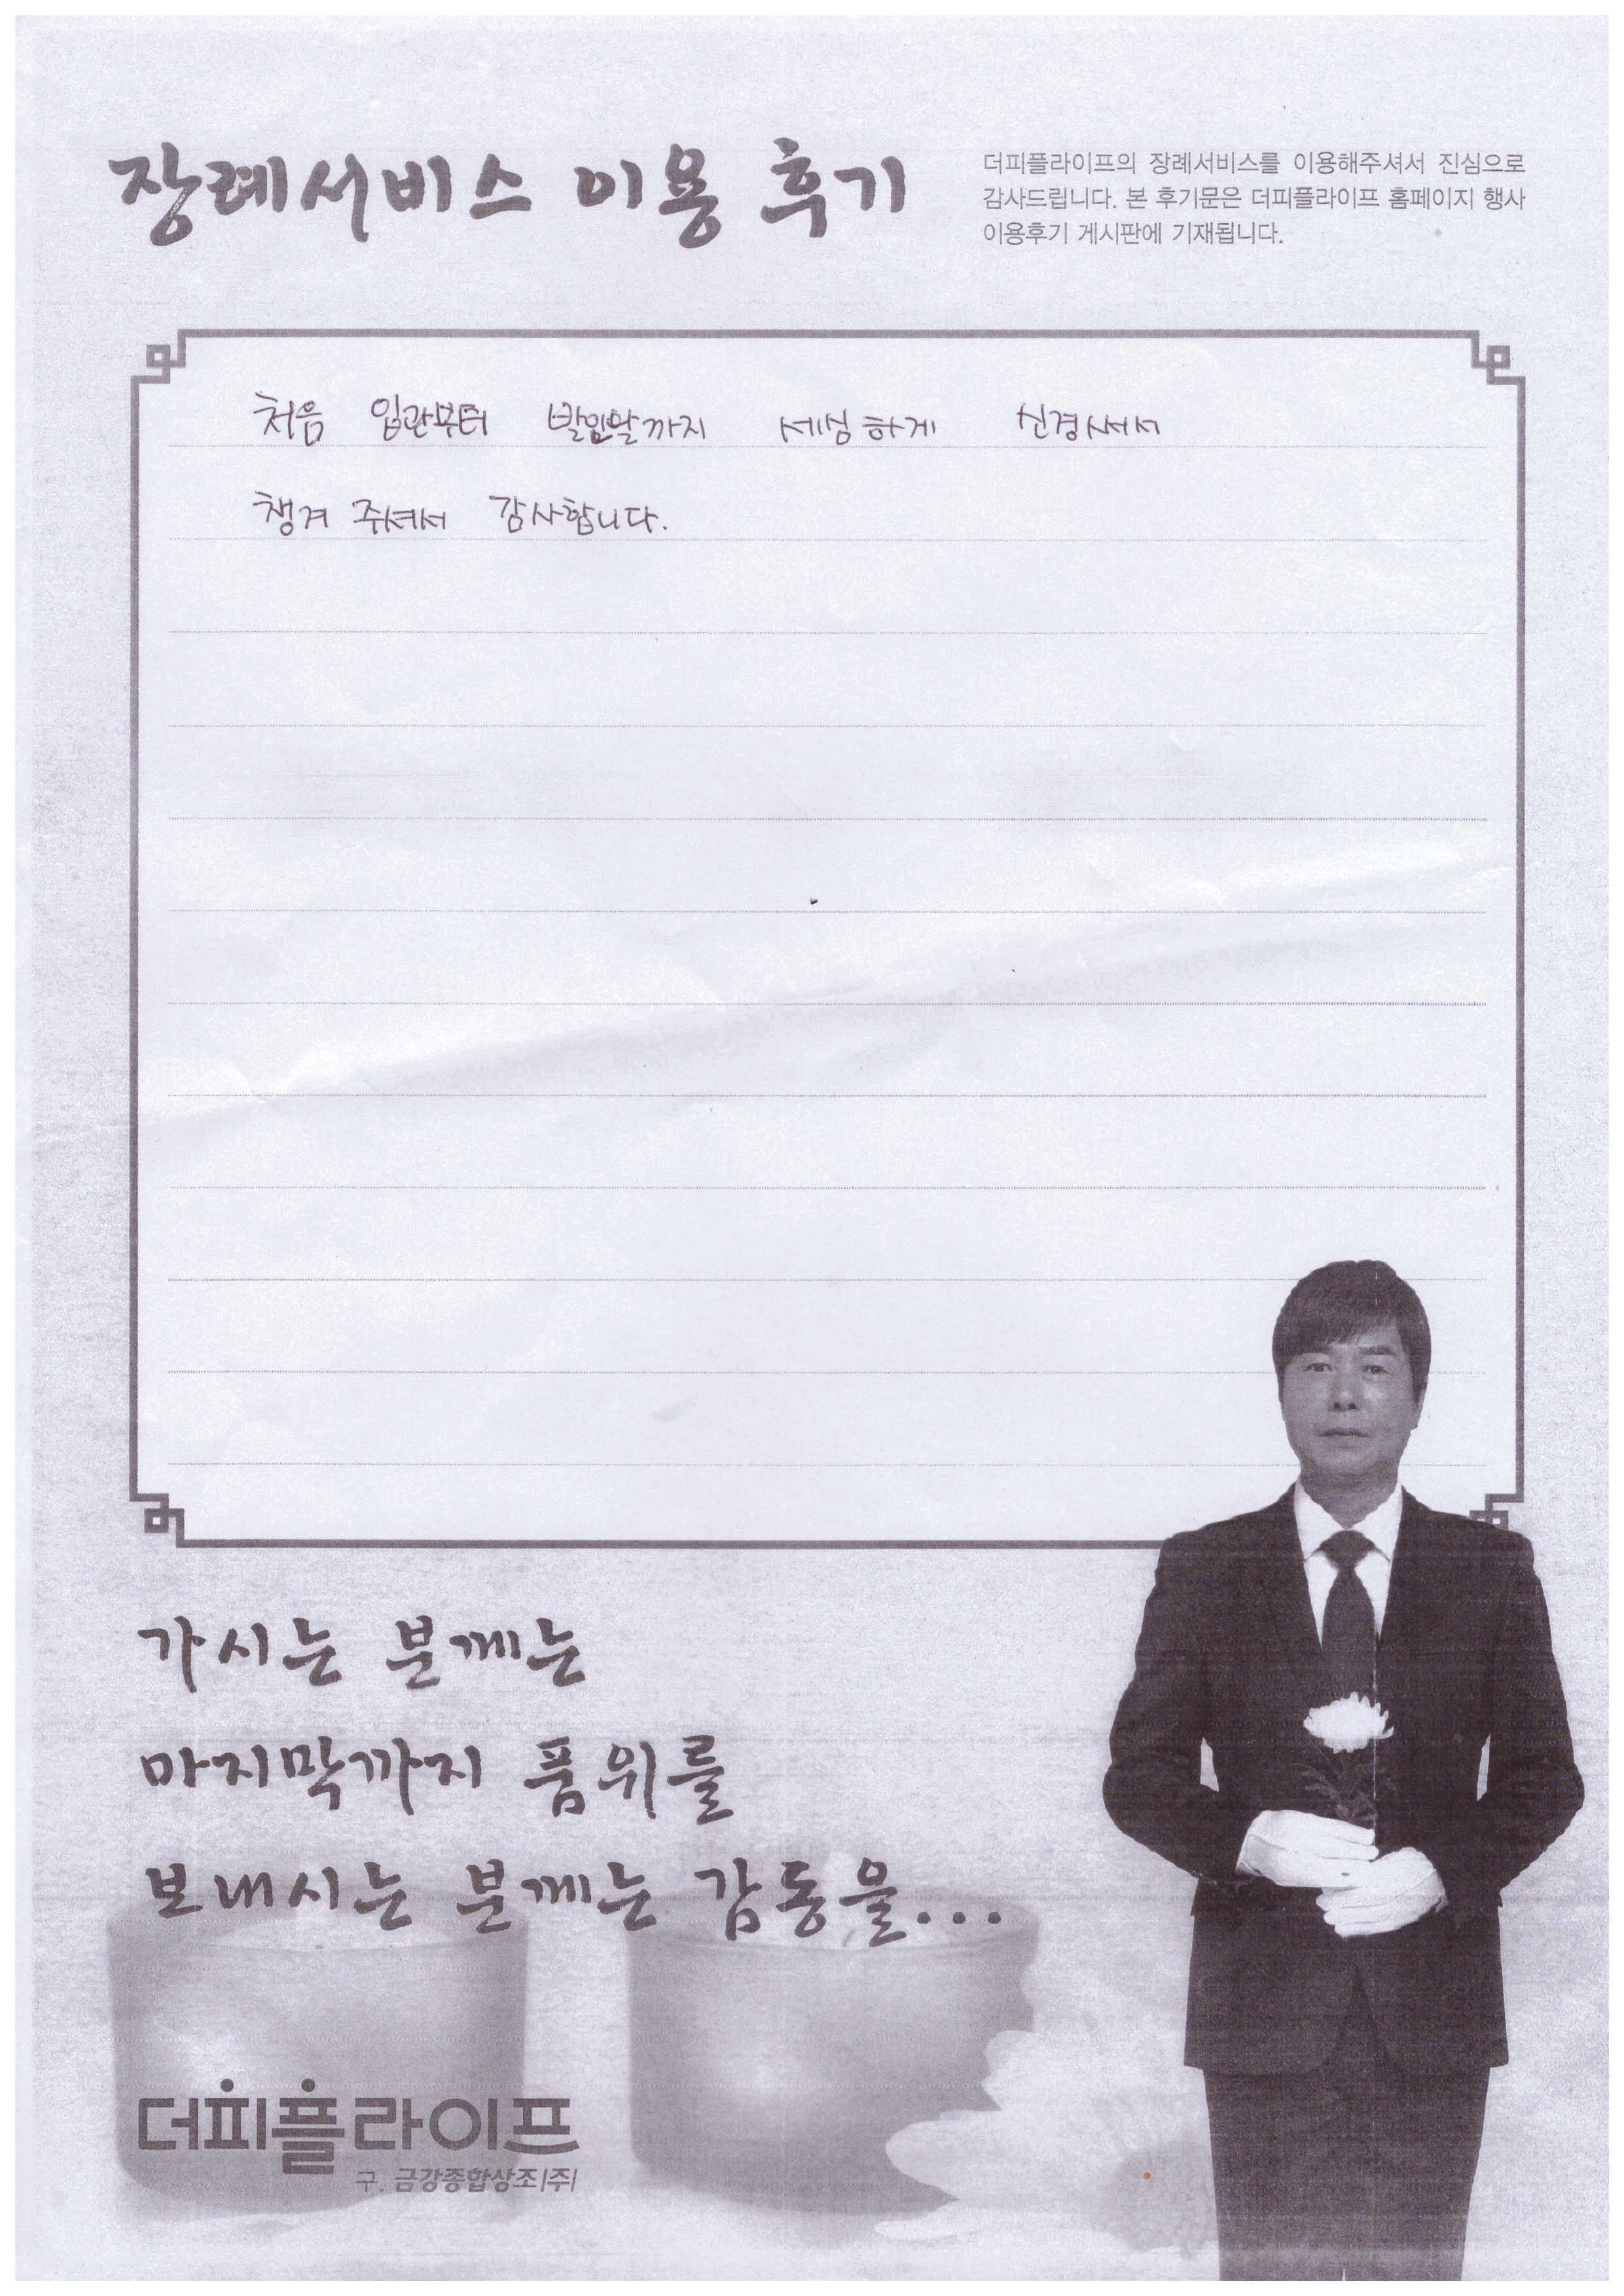 장례서비스 이용 후기
더피플라이프의 장례서비스를 이용해주셔서 진심으로
감사드립니다. 본 후기문은 더피플라이프 홈페이지 행사
이용후기 게시판에 기재됩니다.
처음 입관부터 발인날까지 세심하게 신경써서
챙겨 주셔서 감사합니다.
가시는 분께는
마지막까지 품위를
보내시는 분께는 감동을...
더피플라이프
구. 금강종합상조|주|